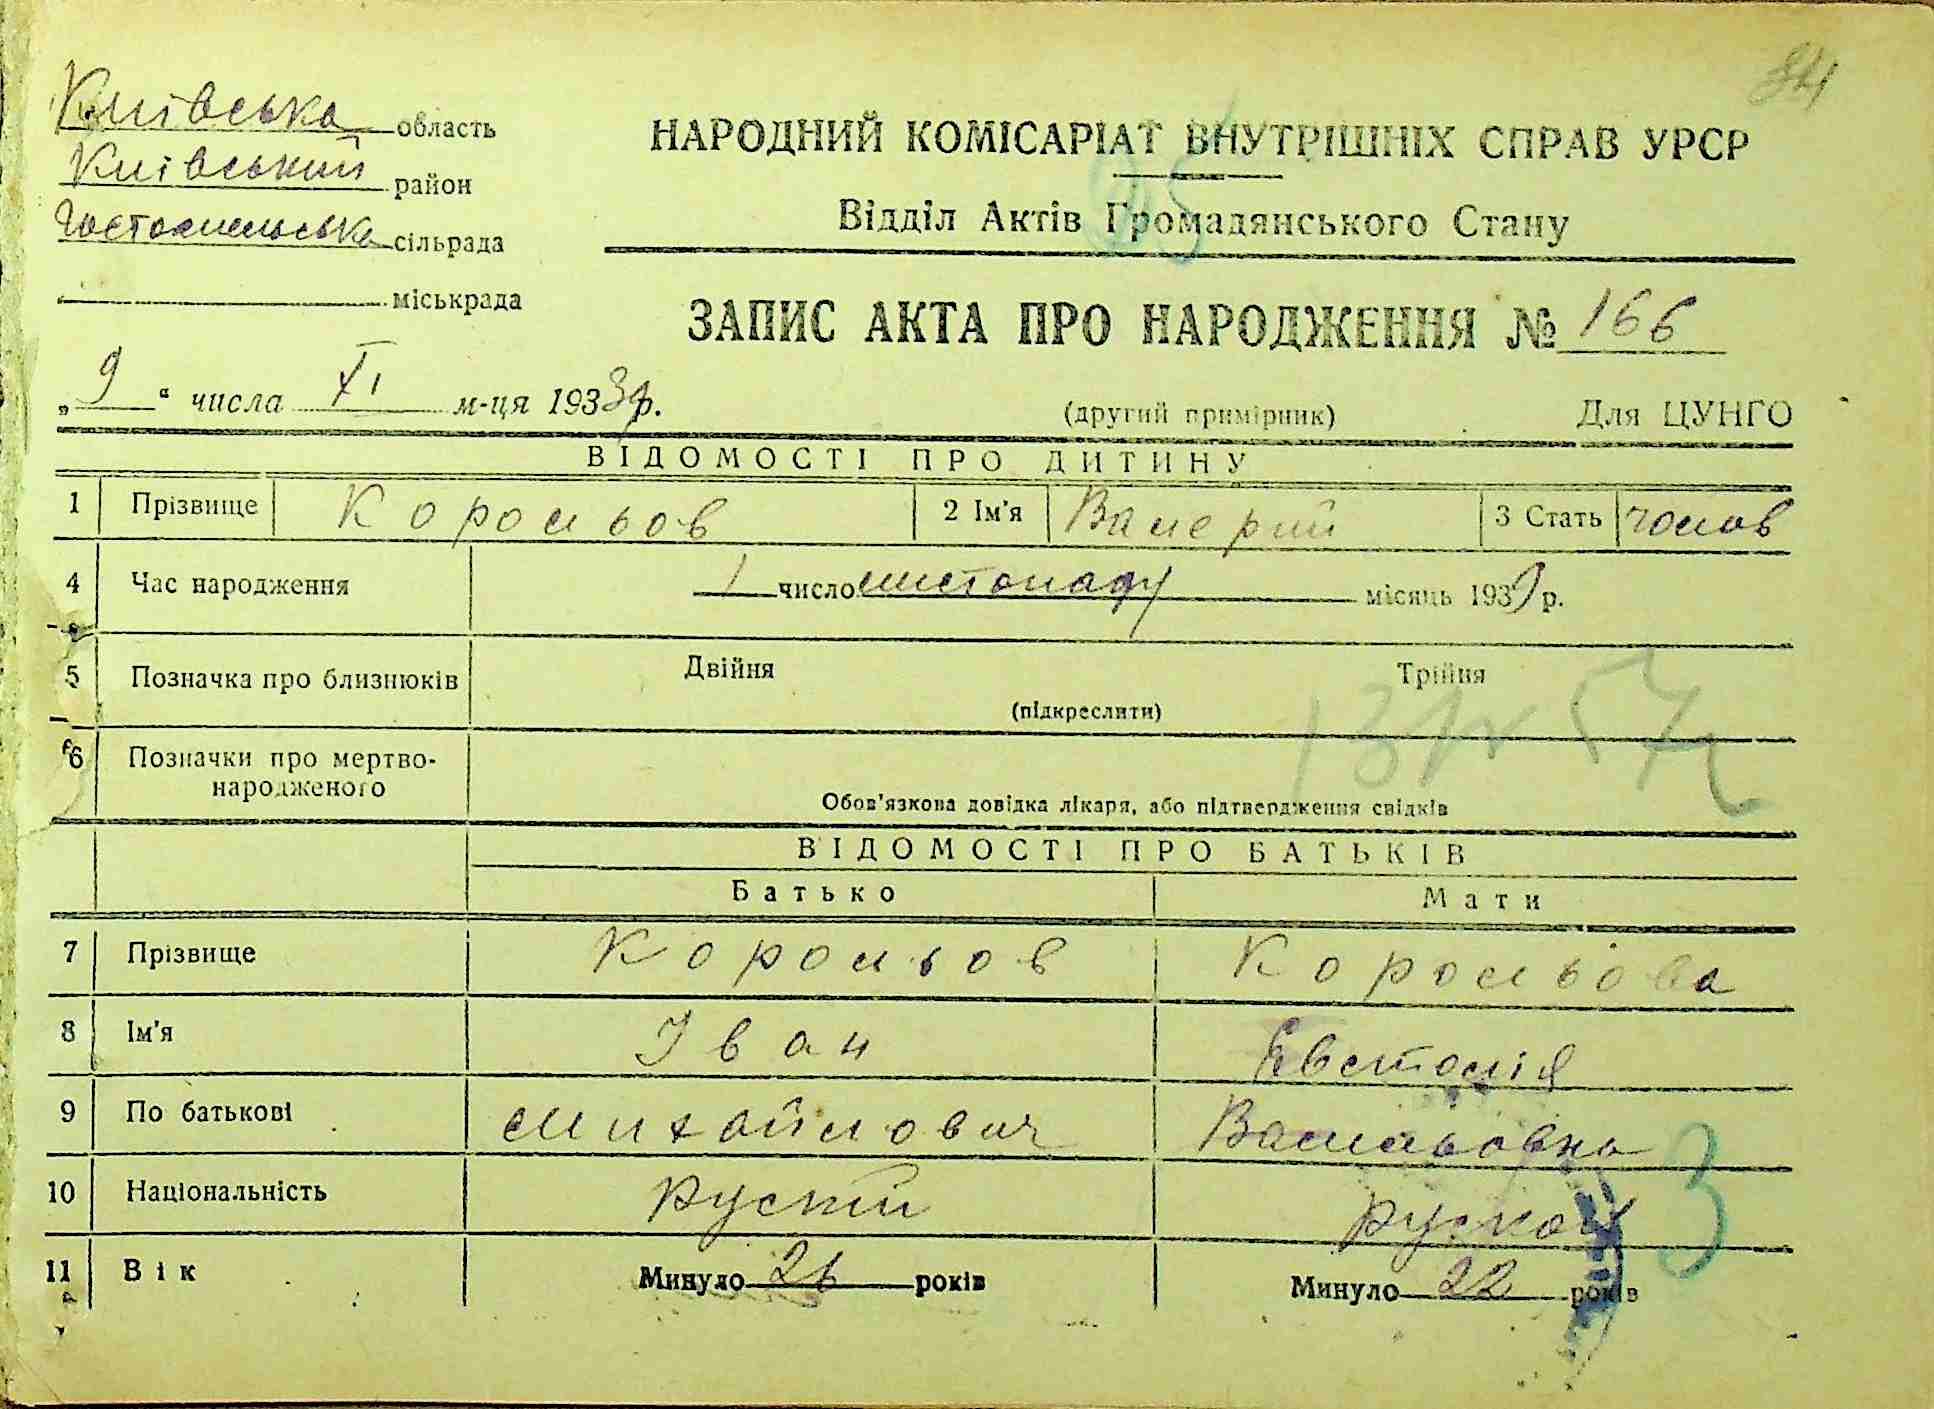 84
Київська область
Київський район
Гостомельська сільрада
міськрада
НАРОДНИЙ КОМІСАРІАТ ВНУТРІШНІХ СПРАВ УРСР
Відділ Актів Громадянського Стану
ЗАПИС АКТА ПРО НАРОДЖЕННЯ № 166
„ 9 “ числа XI м-ця 1939 р.
(другий примірник) Для ЦУНГО
ВІДОМОСТІ ПРО ДИТИНУ
1 Прізвище Корольов 2 Ім'я Валерий 3 Стать чолов
4 Час народження 1 число листопаду місяць 1939 р.
5 Позначка про близнюків Двійня Трійня
(підкреслити)
6 Позначки про мертво-
народженого
Обов'язкова довідка лікаря, або підтвердження свідків
ВІДОМОСТІ ПРО БАТЬКІВ
Батько Мати
7 Прізвище Корольов Корольова
8 Ім'я Іван Евстолія
9 По батькові Михайлович Васильовна
10 Національність
11 Вік Минуло 26 років Минуло 22 років
3